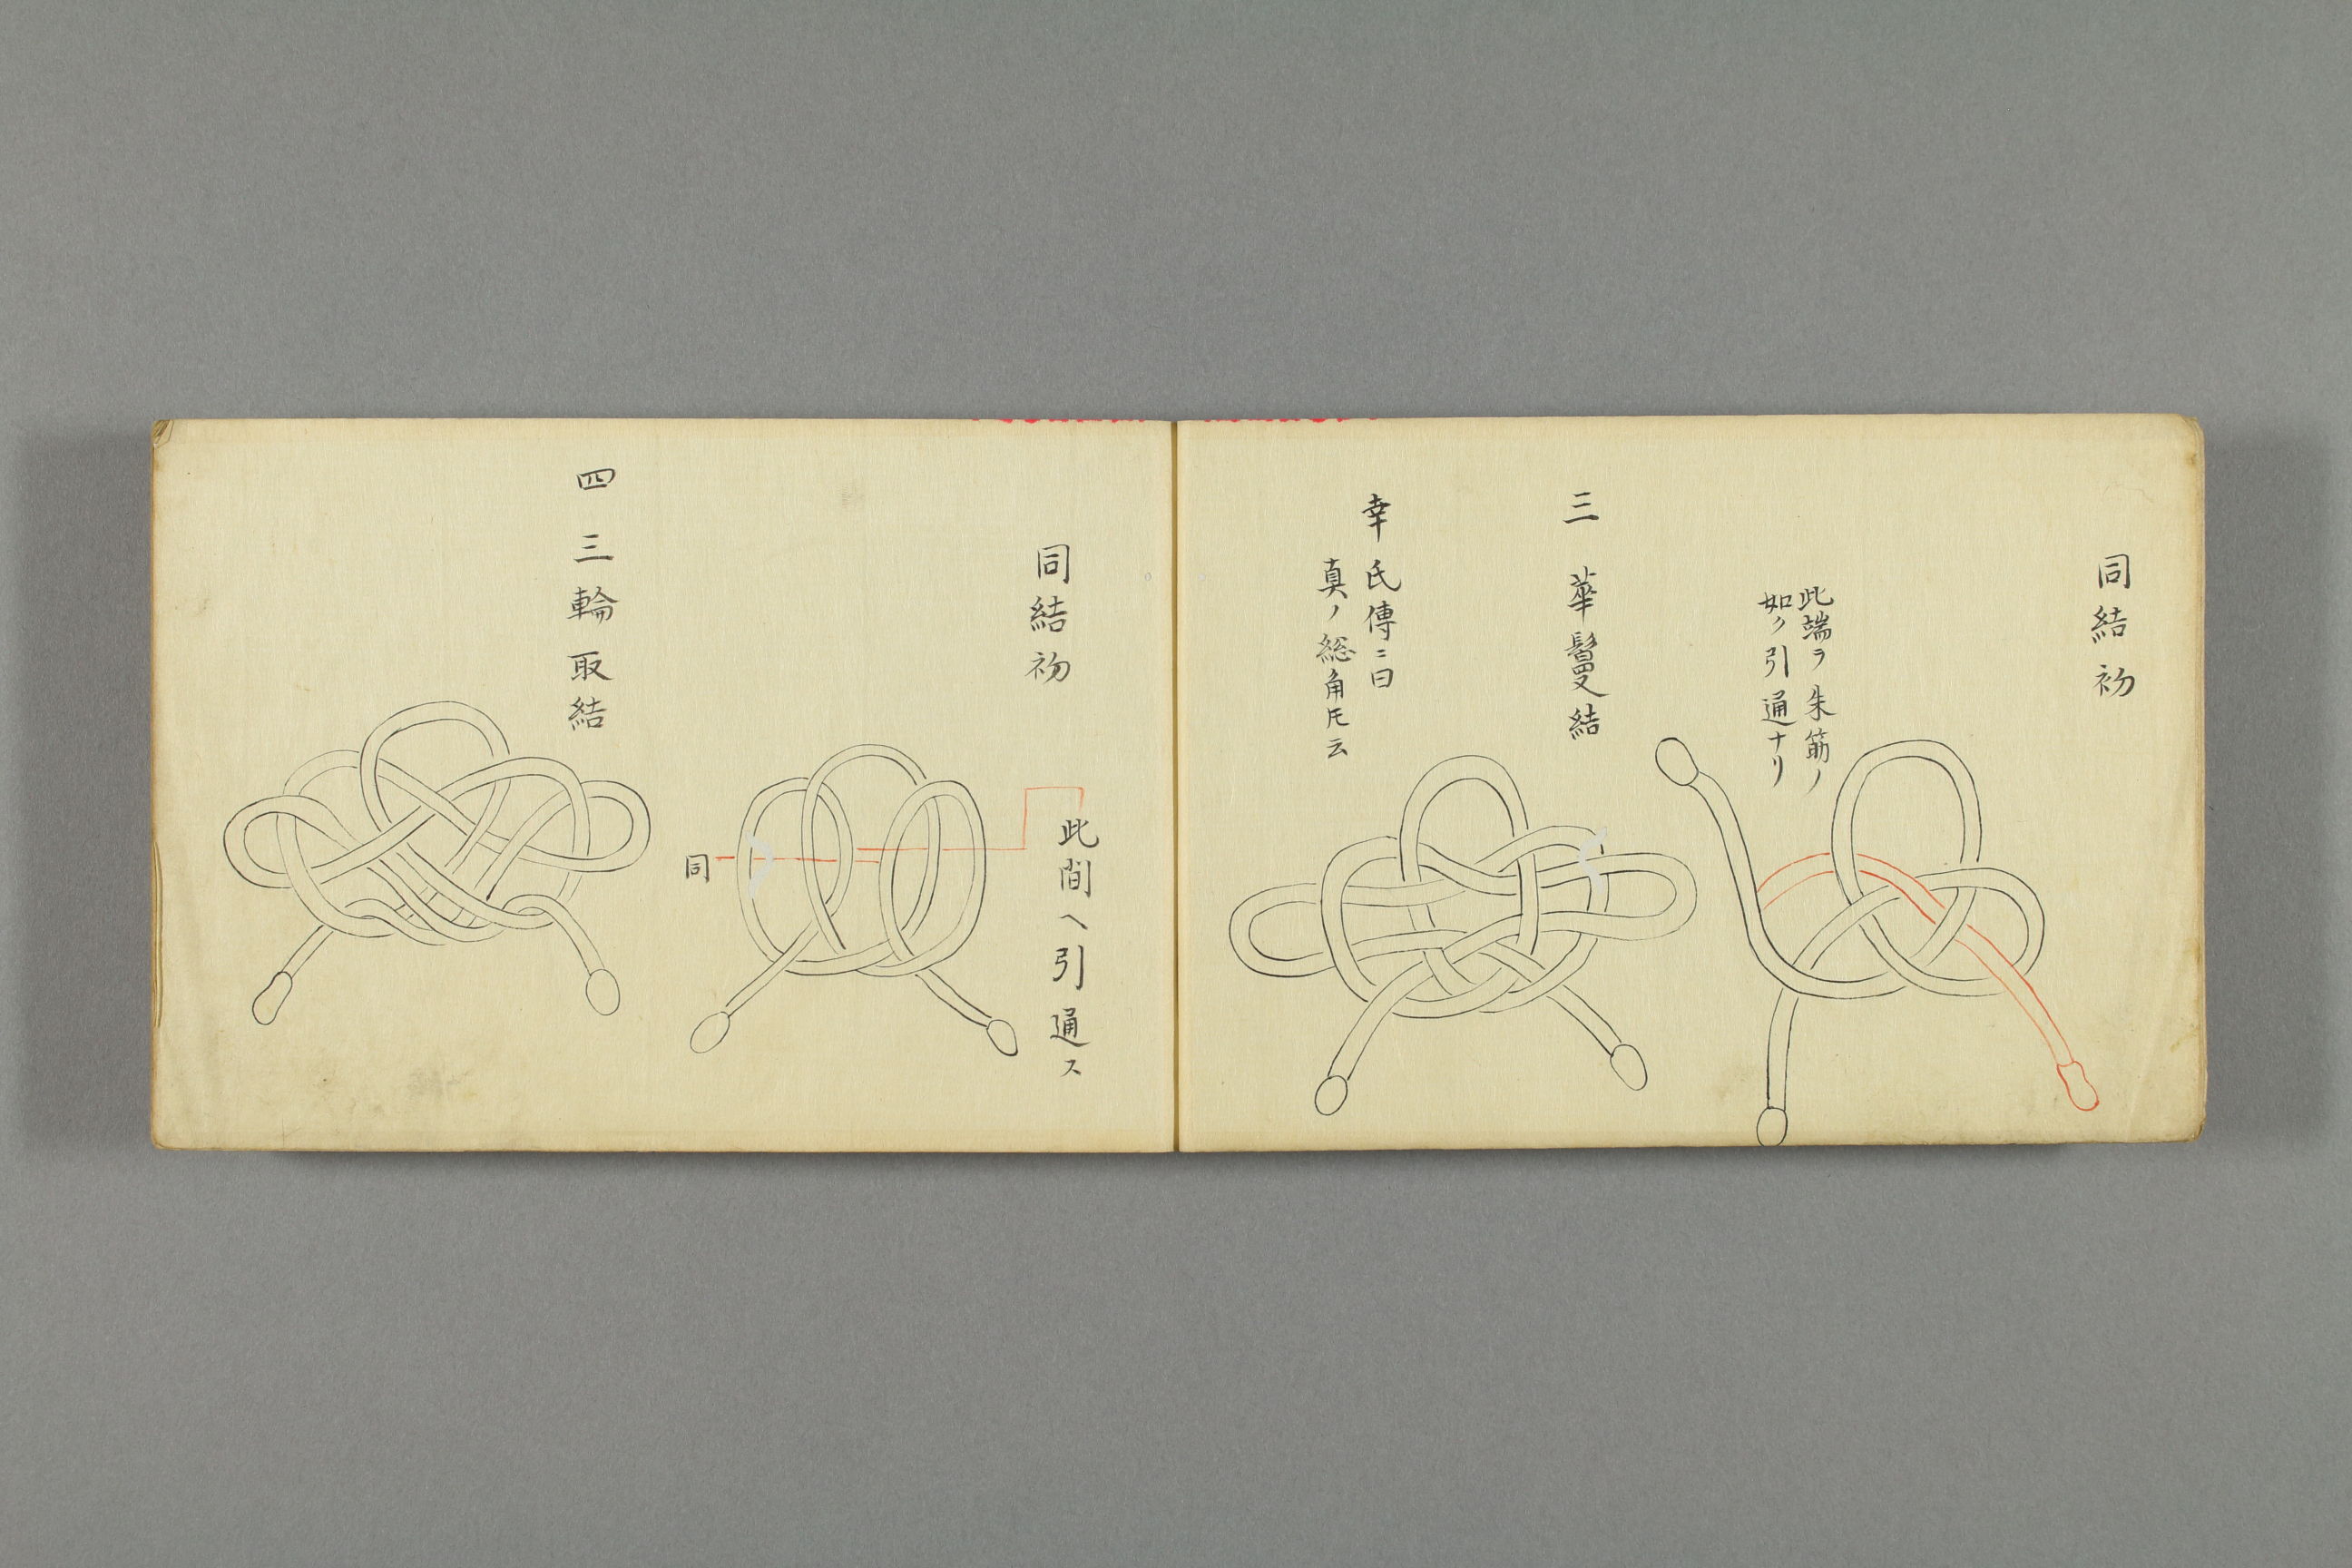 同結初
此端ヲ朱筋ノ
如ク引通ナリ
三 華鬘結
幸氏傳ニ曰
真ノ総角𪜈云
同結初
此間ヘ引通ス
同
四 三輪取結